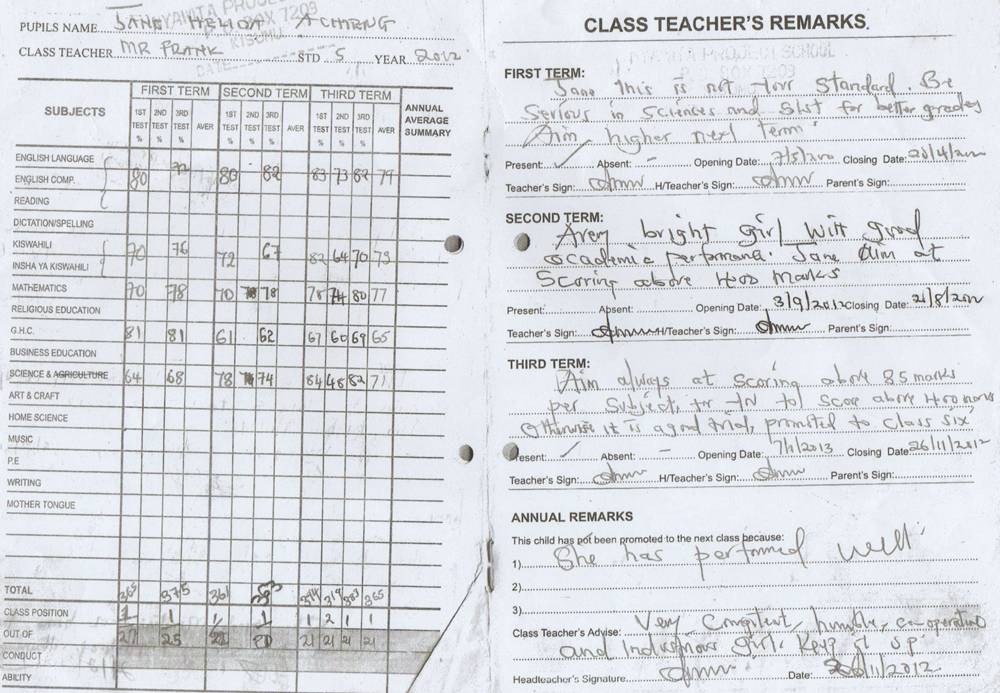 PUPILS NAME JANE HELIDA ACHIENG
CLASS TEACHER MR FRANK STD 5 YEAR 2012
SUBJECTS FIRST TERM SECOND TERM THIRD TERM ANNUAL AVERAGE SUMMARY
1ST TEST % 2ND TEST % 3RD TEST % AVER 1ST TEST % 2ND TEST % 3RD TEST % AVER 1ST TEST % 2ND TEST % 3RD TEST % AVER
ENGLISH LANGUAGE
ENGLISH COMP. 80 72 80 82 83 73 82 79
READING
DICTATION/SPELLING
KISWAHILI 70 76 72 67 82 64 70 73
INSHA YA KISWAHILI
MATHEMATICS 70 78 70 78 78 74 80 77
RELIGIOUS EDUCATION
G.H.C. 81 81 61 62 67 60 69 65
BUSINESS EDUCATION
SCIENCE & AGRICULTURE 64 68 78 74 84 48 82 71
ART & CRAFT
HOME SCIENCE
MUSIC
P.E
WRITING
MOTHER TONGUE
TOTAL 365 375 361 394 319 383 365
CLASS POSITION 1 1 1 1 1 2 1 1
OUT OF 25 21 21 21 21
CONDUCT
ABILITY
CLASS TEACHER'S REMARKS.
FIRST TERM:
Jane this is not Your Standard. Be
Serious in Sciences and for better grades
Aim higher next term
Present: Absent: - Opening Date: Closing Date:
Teacher's Sign: H/Teacher's Sign: Parent's Sign:
SECOND TERM:
A very bright girl with good
academic performance. Jane Aim at
Scoring above 400 Marks
Present: Absent: Opening Date: 3/9/2012 Closing Date:
Teacher's Sign: H/Teacher's Sign: Parent's Sign:
THIRD TERM:
Aim always at Scoring above 85 marks
per Subject, above 400 marks
Otherwise it is a good trial, promoted to Class six
Present: Absent: - Opening Date: 7/1/2013 Closing Date 26/11/2012
Teacher's Sign: H/Teacher's Sign: Parent's Sign:
ANNUAL REMARKS
This child has not been promoted to the next class because:
1) She has performed well
2)
3)
Class Teacher's Advise: Very Competent, humble, co-operative
and Industrious girl. Keep it up
Headteacher's Signature Date: 26/11/2012